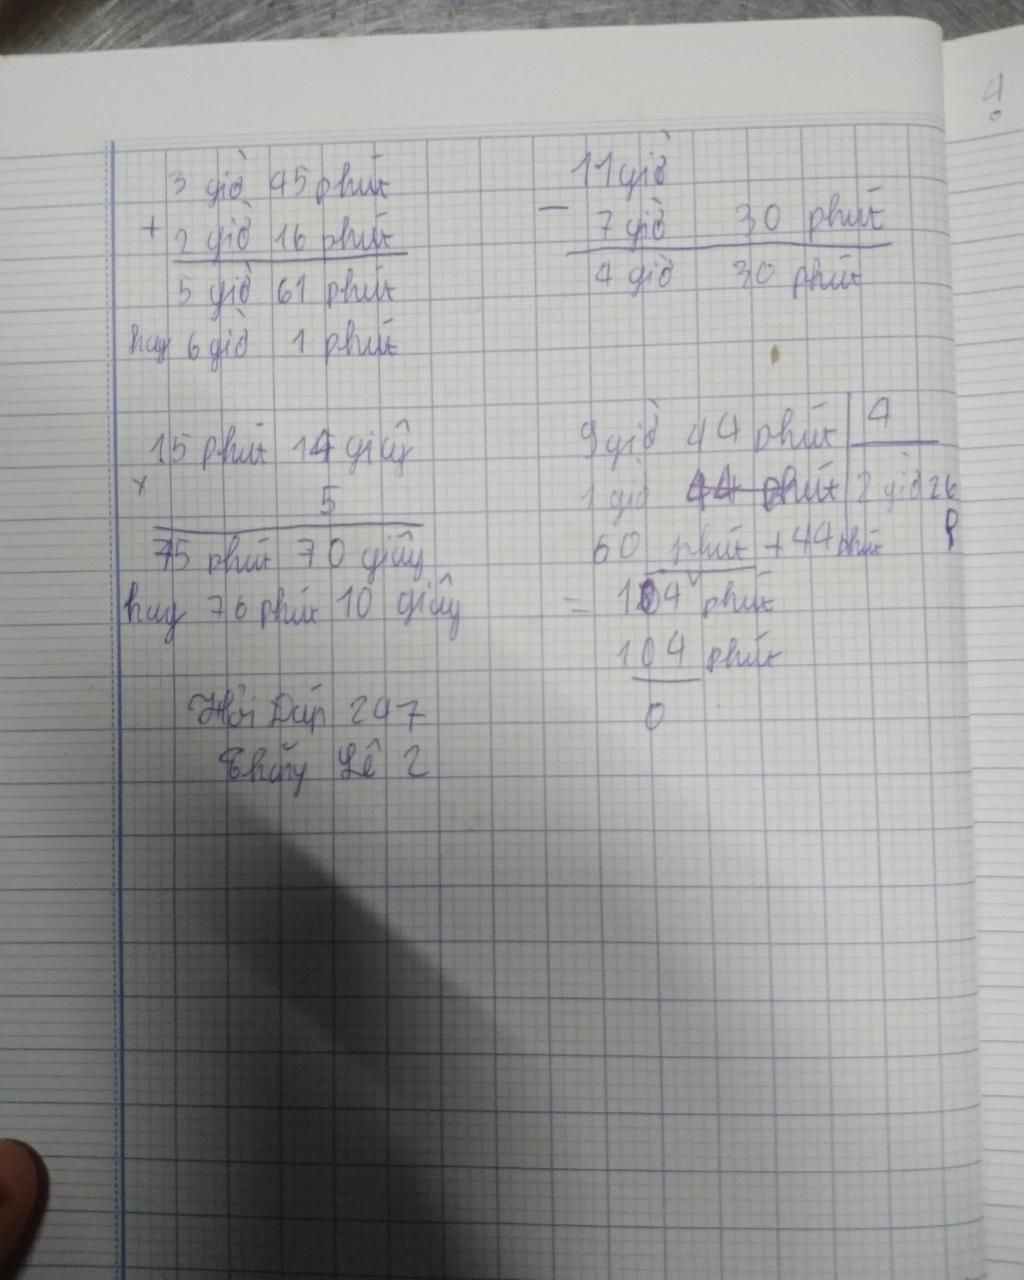 3 giờ 45 phút
+
2 giờ 16 phút
5 giờ 61 phút
hay 6 giờ 1 phút
11 giờ
-
7 giờ 30 phút
4 giờ 30 phút
15 phút 14 giây
x
5
75 phút 70 giây
hay 76 phút 10 giây
Hỏi Đáp 247
Thầy Lê 2
9 giờ 44 phút 4
1 giờ 44 phút 2 giờ 26
60 phút + 44 phút P
= 104 phút
104 phút
0
4